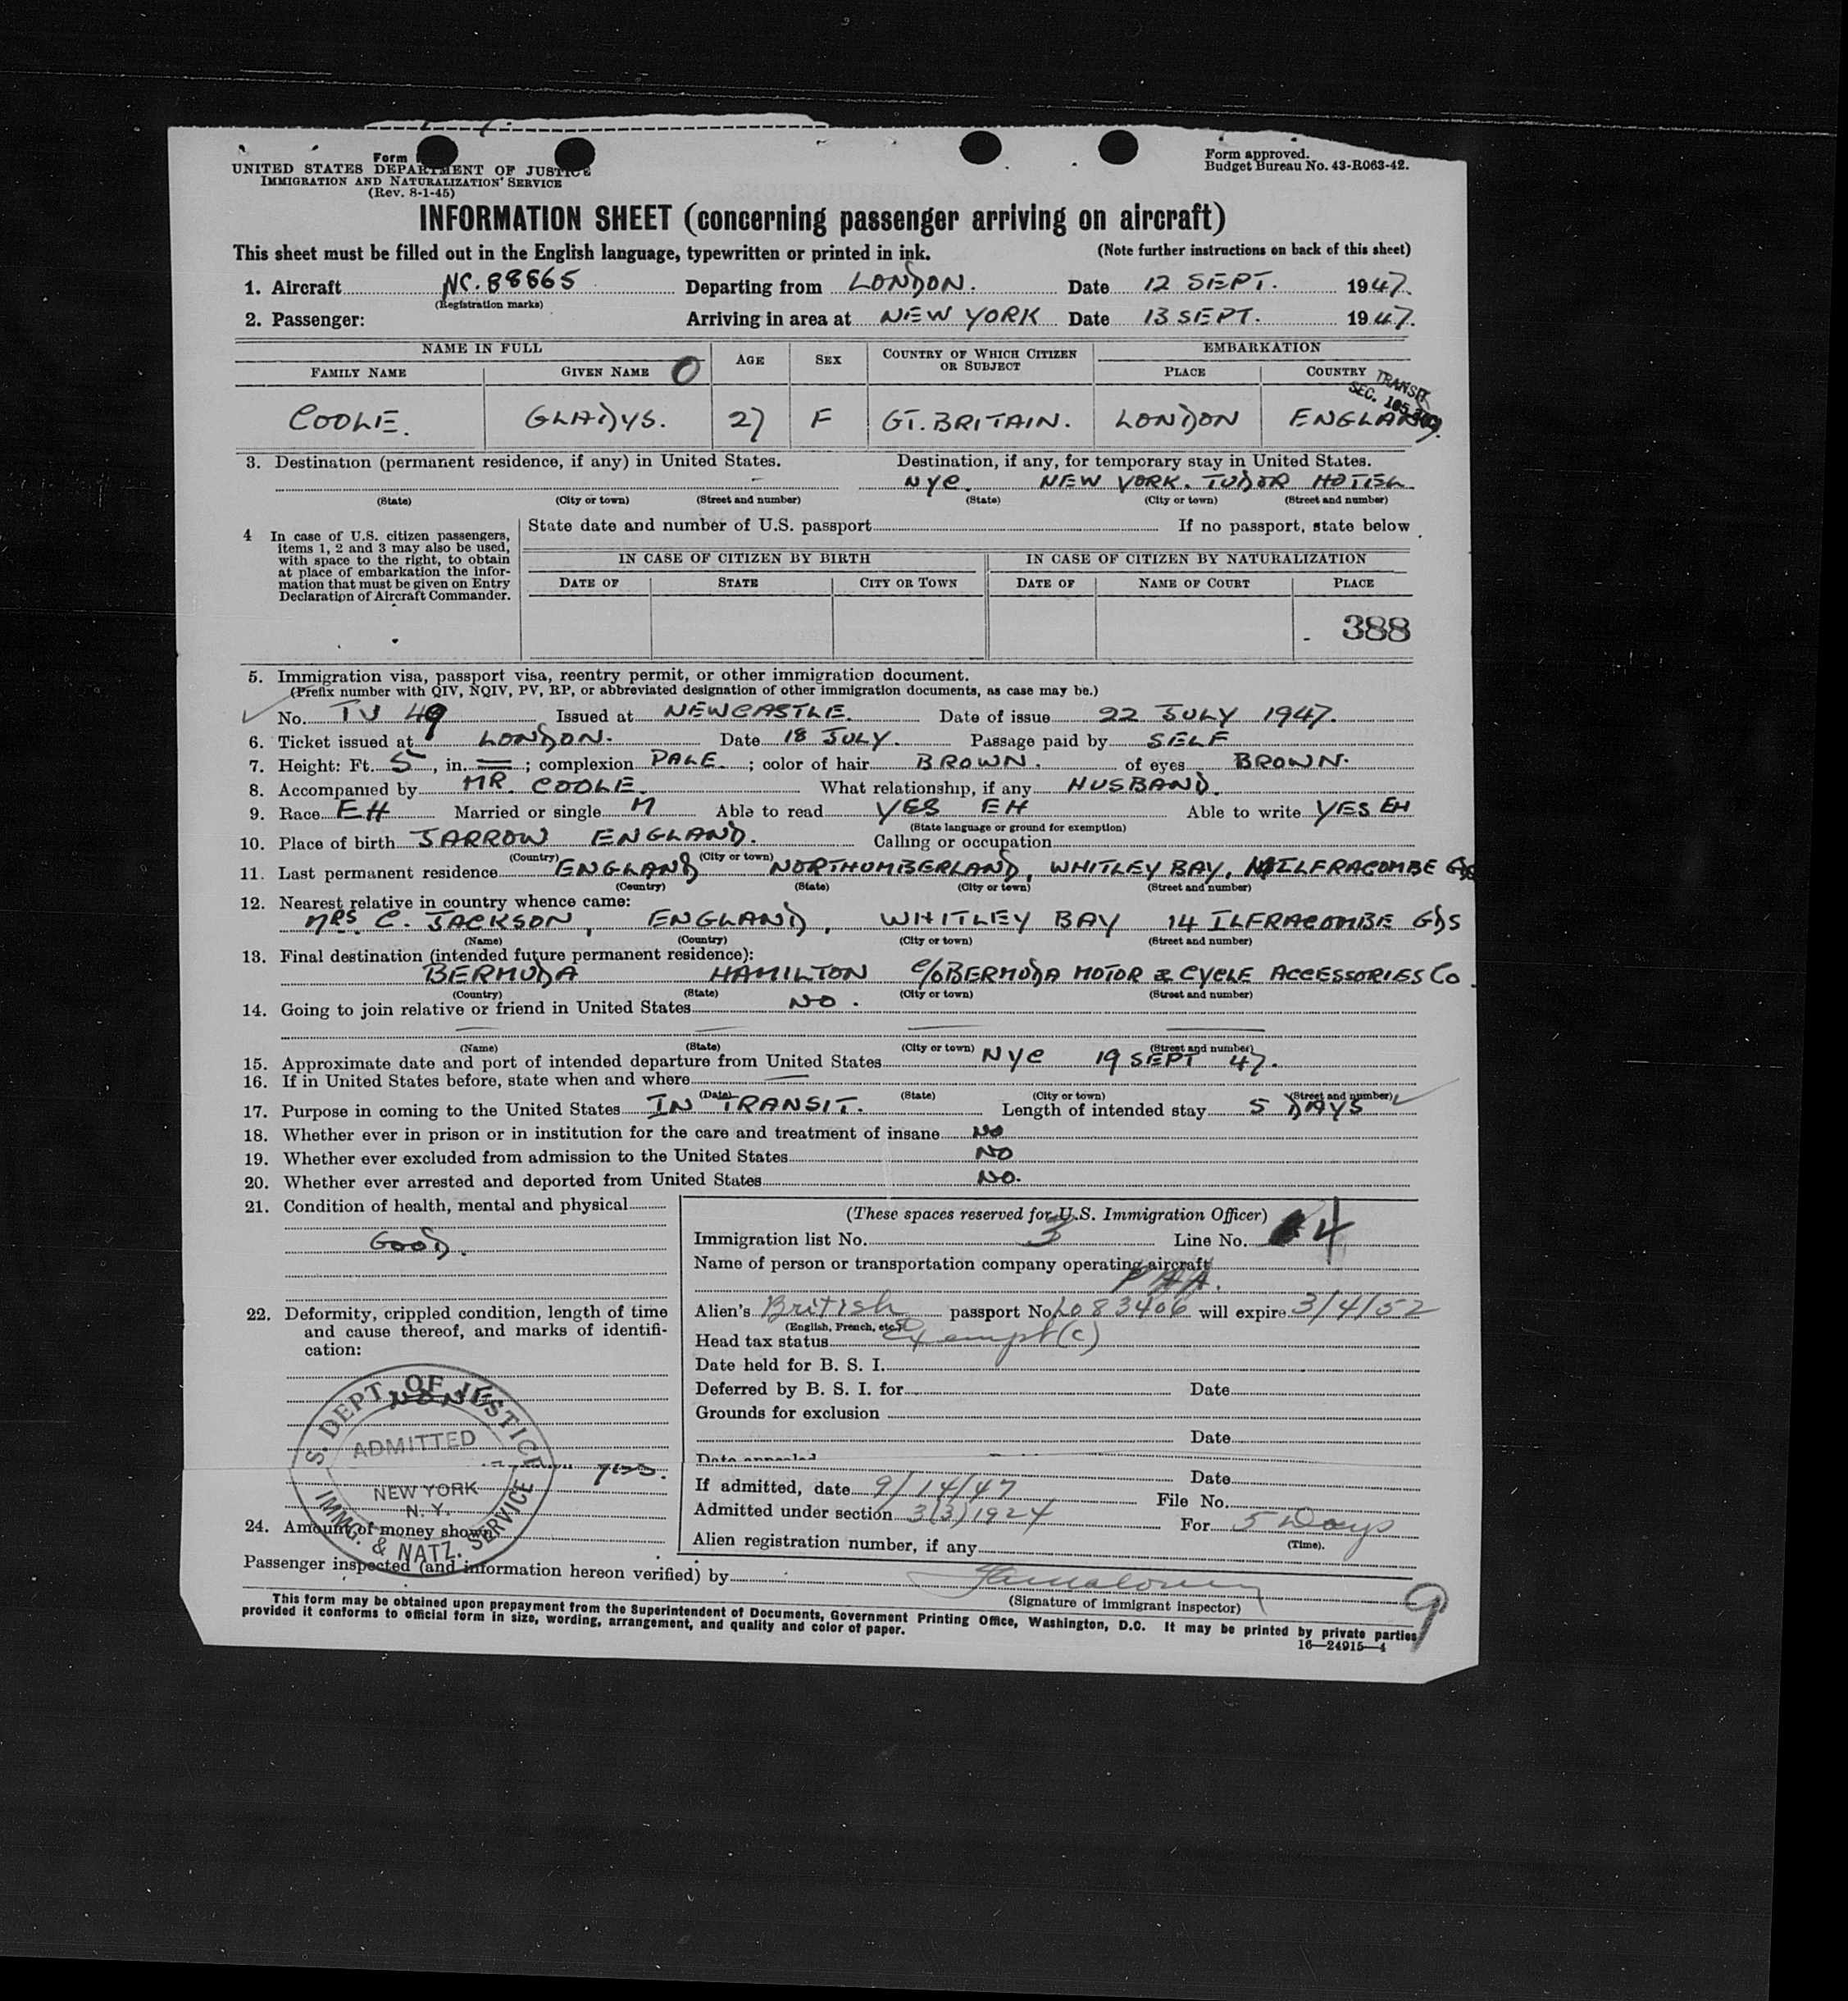 Form
UNITED STATES DEPARTMENT OF JUSTICE
IMMIGRATION AND NATURALIZATION SERVICE
(Rev. 8-1-45)
Form approved.
Budget Bureau No. 43-R063-42.
INFORMATION SHEET (concerning passenger arriving on aircraft)
This sheet must be filled out in the English language, typewritten or printed in ink. (Note further instructions on back of this sheet)
1. Aircraft NC.88865 Departing from LONDON. Date 12 SEPT. 1947.
(Registration marks)
2. Passenger: Arriving in area at NEW YORK Date 13 SEPT. 1947.
NAME IN FULL AGE SEX COUNTRY OF WHICH CITIZEN OR SUBJECT EMBARKATION
FAMILY NAME GIVEN NAME O PLACE COUNTRY
TRANSIT
SEC.
COOLE. GLADYS. 27 F GT. BRITAIN. LONDON ENGLAND.
3. Destination (permanent residence, if any) in United States. Destination, if any, for temporary stay in United States.
- NYC. NEW YORK. TUDOR HOTEL
(State) (City or town) (Street and number) (State) (City or town) (Street and number)
4 In case of U.S. citizen passengers, items 1, 2 and 3 may also be used, with space to the right, to obtain at place of embarkation the information that must be given on Entry Declaration of Aircraft Commander.
State date and number of U.S. passport If no passport, state below
IN CASE OF CITIZEN BY BIRTH IN CASE OF CITIZEN BY NATURALIZATION
DATE OF STATE CITY OR TOWN DATE OF NAME OF COURT PLACE
388
5. Immigration visa, passport visa, reentry permit, or other immigration document.
(Prefix number with QIV, NQIV, PV, RP, or abbreviated designation of other immigration documents, as case may be.)
No. TV 49 Issued at NEWCASTLE. Date of issue 22 JULY 1947.
6. Ticket issued at LONDON. Date 18 JULY. Passage paid by SELF
7. Height: Ft. 5, in. —; complexion PALE.; color of hair BROWN. of eyes BROWN.
8. Accompanied by MR. COOLE. What relationship, if any HUSBAND.
9. Race EH Married or single M Able to read YES EH Able to write YES EH
(State language or ground for exemption)
10. Place of birth JARROW ENGLAND. Calling or occupation
(Country) (City or town)
11. Last permanent residence ENGLAND NORTHUMBERLAND, WHITLEY BAY, ILFRACOMBE GDS
(Country) (State) (City or town) (Street and number)
12. Nearest relative in country whence came:
MRS. C. JACKSON, ENGLAND, WHITLEY BAY 14 ILFRACOMBE GDS
(Name) (Country) (City or town) (Street and number)
13. Final destination (intended future permanent residence):
BERMUDA HAMILTON c/o BERMUDA MOTOR & CYCLE ACCESSORIES Co.
(Country) (State) (City or town) (Street and number)
14. Going to join relative or friend in United States NO.
(Name) (State) (City or town) (Street and number)
15. Approximate date and port of intended departure from United States NYC 19 SEPT 47.
16. If in United States before, state when and where —
(Date) (State) (City or town) (Street and number)
17. Purpose in coming to the United States IN TRANSIT. Length of intended stay 5 DAYS
18. Whether ever in prison or in institution for the care and treatment of insane NO
19. Whether ever excluded from admission to the United States NO
20. Whether ever arrested and deported from United States NO.
21. Condition of health, mental and physical
GOOD.
22. Deformity, crippled condition, length of time and cause thereof, and marks of identification:
NONE
yes.
24. Amount of money shown
S. DEPT. OF JUSTICE
ADMITTED
NEW YORK
N. Y.
IMMG. & NATZ. SERVICE
(These spaces reserved for U.S. Immigration Officer)
Immigration list No. 3 Line No. 4
Name of person or transportation company operating aircraft
PAA.
Alien's British passport No. L083406 will expire 3/4/52
(English, French, etc.)
Head tax status Exempt (c)
Date held for B. S. I.
Deferred by B. S. I. for Date
Grounds for exclusion
Date
Date appealed
Date
If admitted, date 9/14/47 File No.
Admitted under section 3(3)1924 For 5 Days
(Time).
Alien registration number, if any
Passenger inspected (and information hereon verified) by
(Signature of immigrant inspector)
9
This form may be obtained upon prepayment from the Superintendent of Documents, Government Printing Office, Washington, D.C. It may be printed by private parties
provided it conforms to official form in size, wording, arrangement, and quality and color of paper.
16—24915—4